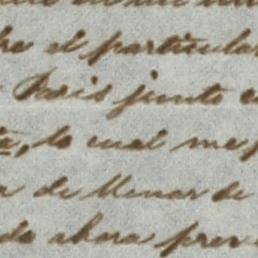 re el particular
Paris junto
, lo cual me
a de llenar de
do ahora prev